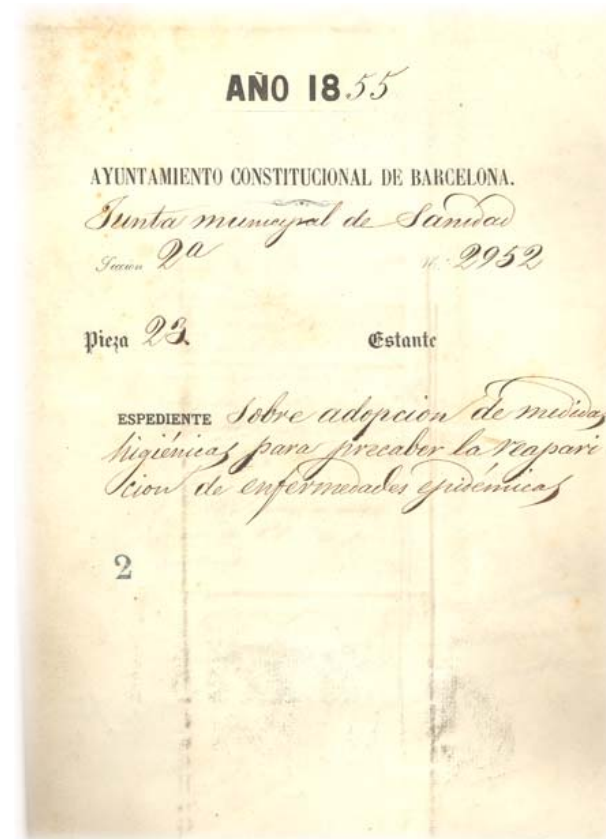 AÑO 1855
AYUNTAMIENTO CONSTITUCIONAL DE BARCELONA.
Junta municipal de Sanidad
Seccion 2a N.º 2952
Pieza 23. Estante
ESPEDIENTE Sobre adopcion de medidas
higiénicas para precaber la reapari
cion de enfermedades epidémicas
2